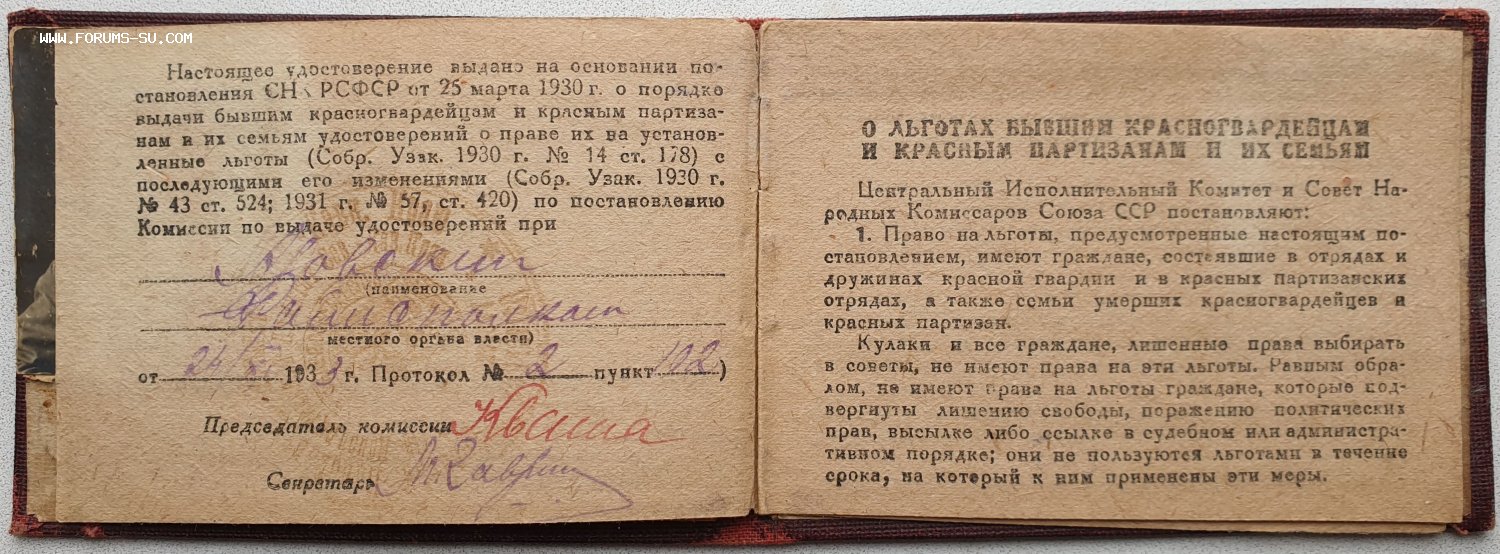 WWW.FORUMS-SU.COM
Настоящее удостоверение выдано на основании по-
становления СНК РСФСР от 25 марта 1930 г. о порядке
выдачи бывшим красногвардейцам и красным партиза-
нам и их семьям удостоверений о праве их на установ-
ленные льготы (Собр. Узак. 1930 г. № 14 ст. 178) с
последующими его изменениями (Собр. Узак. 1930 г.
№ 43 ст. 524; 1931 г. № 57, ст. 420) по постановлению
Комиссии по выдаче удостоверений при
(наименование
местного органа власти)
от 24 1933 г. Протокол № 2 пункт 102)
Председатель комиссии Кваша
Секретарь
О ЛЬГОТАХ БЫВШИМ КРАСНОГВАРДЕЙЦАМ
И КРАСНЫМ ПАРТИЗАНАМ И ИХ СЕМЬЯМ
Центральный Исполнительный Комитет и Совет На-
родных Комиссаров Союза ССР постановляют:
1. Право на льготы, предусмотренные настоящим по-
становлением, имеют граждане, состоявшие в отрядах и
дружинах красной гвардии и в красных партизанских
отрядах, а также семьи умерших красногвардейцев и
красных партизан.
Кулаки и все граждане, лишенные права выбирать
в советы, не имеют права на эти льготы. Равным обра-
лом, не имеют права на льготы граждане, которые под-
вергнуты лишению свободы, поражению политических
прав, высылке либо ссылке в судебном или администра-
тивном порядке; они не пользуются льготами в течение
срока, на который к ним применены эти меры.